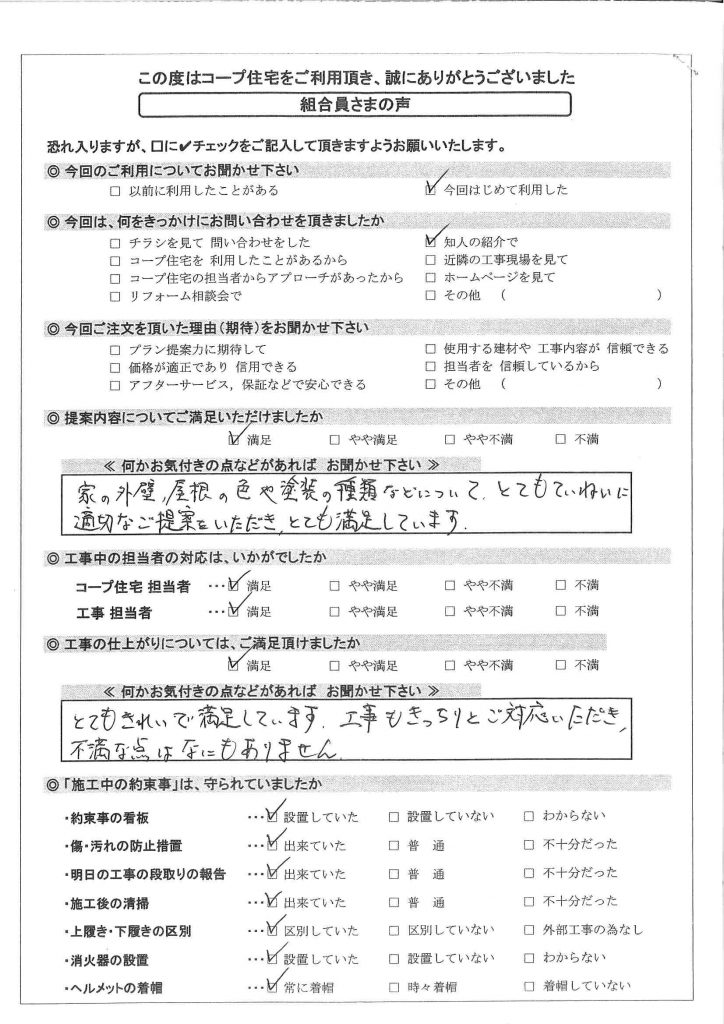 この度はコープ住宅をご利用頂き、誠にありがとうございました
組合員さまの声
恐れ入りますが、□に✔チェックをご記入して頂きますようお願いいたします。
◎ 今回のご利用についてお聞かせ下さい
□ 以前に利用したことがある ☑ 今回はじめて利用した
◎ 今回は、何をきっかけにお問い合わせを頂きましたか
□ チラシを見て 問い合わせをした ☑ 知人の紹介で
□ コープ住宅を 利用したことがあるから □ 近隣の工事現場を見て
□ コープ住宅の担当者からアプローチがあったから □ ホームページを見て
□ リフォーム相談会で □ その他 （ ）
◎ 今回ご注文を頂いた理由（期待）をお聞かせ下さい
□ プラン提案力に期待して □ 使用する建材や 工事内容が 信頼できる
□ 価格が適正であり 信用できる □ 担当者を 信頼しているから
□ アフターサービス，保証などで安心できる □ その他 （ ）
◎ 提案内容についてご満足いただけましたか
☑ 満足 □ やや満足 □ やや不満 □ 不満
≪ 何かお気付きの点などがあれば お聞かせ下さい ≫
家の外壁，屋根の色や塗装の種類などについて、とてもていねいに
適切なご提案をいただき、とても満足しています．
◎ 工事中の担当者の対応は、いかがでしたか
コープ住宅 担当者 …☑ 満足 □ やや満足 □ やや不満 □ 不満
工事 担当者 …☑ 満足 □ やや満足 □ やや不満 □ 不満
◎ 工事の仕上がりについては、ご満足頂けましたか
☑ 満足 □ やや満足 □ やや不満 □ 不満
≪ 何かお気付きの点などがあれば お聞かせ下さい ≫
とてもきれいで満足しています．工事もきっちりとご対応いただき，
不満な点はなにもありません．
◎「施工中の約束事」は、守られていましたか
・約束事の看板 …☑ 設置していた □ 設置していない □ わからない
・傷・汚れの防止措置 …☑ 出来ていた □ 普 通 □ 不十分だった
・明日の工事の段取りの報告 …☑ 出来ていた □ 普 通 □ 不十分だった
・施工後の清掃 …☑ 出来ていた □ 普 通 □ 不十分だった
・上履き・下履きの区別 …☑ 区別していた □ 区別していない □ 外部工事の為なし
・消火器の設置 …☑ 設置していた □ 設置していない □ わからない
・ヘルメットの着帽 …☑ 常に着帽 □ 時々着帽 □ 着帽していない